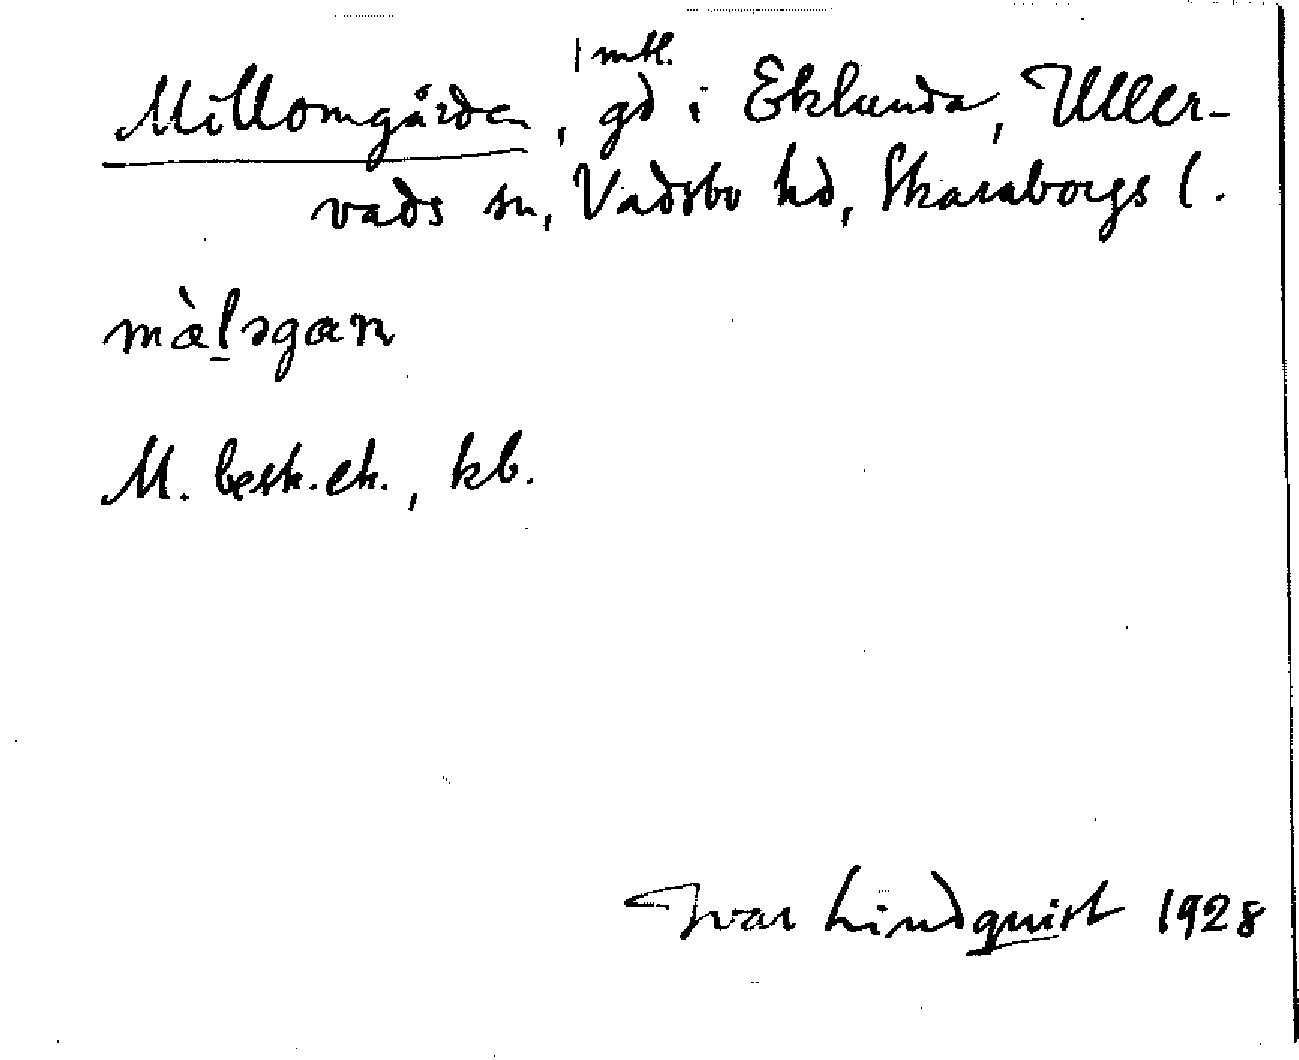 Millomgården, 1 mtl. gd i Eklunda, Uller-
vads sn, Vadsbo hd, Skaraborgs l.
mæ̀l̠əgɑɴ
M. besk.ek., kb.
Ivar Lindquist 1928